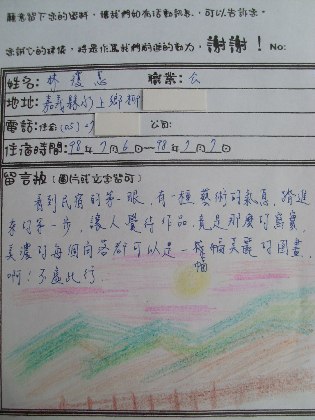 願意留下您的資料，讓我們如有活動訊息，可以告訴您。
您誠心的建議，將是作為我們前進的動力，謝謝！No:
姓名：林瓊志 職業：公
地址：嘉義縣水上鄉柳
電話：住宅(05) 公司：
住宿時間：98年7月6日~98年7月7日
留言板（圖片或文字皆可）
看到民宿的第一眼，有一種藝術的氣息，踏進
去的第一步，讓人覺得作品，竟是那麼的寫實
美濃的每個角落都可以是一幅美麗的圖畫
啊！不虛此行。